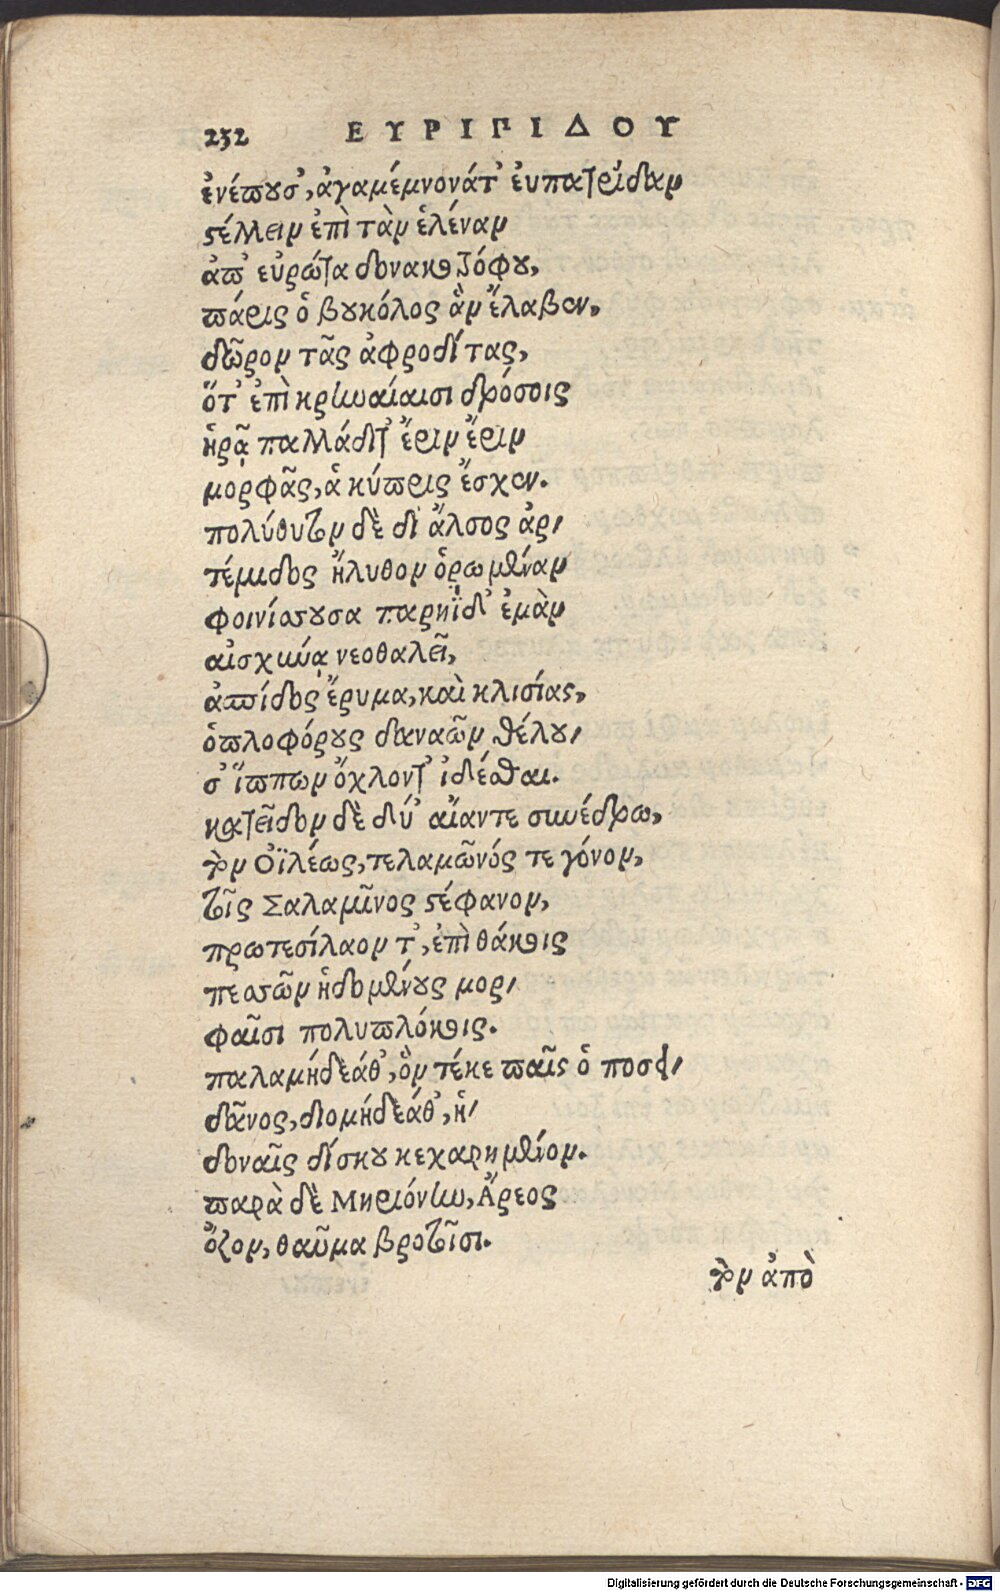 232 ΕΥΡΙΠΙΔΟΥ
ἐνέπουσ', ἀγαμέμνονάτ' ἐυπατρίδαν
στέλλειν ἐπὶ τὰν ἑλέναν
ἀπ' εὐρώτα δονακοτρόφου,
πάρις ὁ βουκόλος ἃν ἔλαβεν,
δῶρον τᾶς ἀφροδίτας,
ὅτ' ἐπὶ κρηναίαισι δρόσοις
ἡρᾷ παλλάδιτ' ἔριν ἔριν
μορφᾶς, ἁ κύπρις ἔσχεν.
πολύθυτον δὲ δι' ἄλσος ἀρ/
τέμιδος ἤλυθον ὁρωμέναν
φοινίσσουσα παρηΐδ' ἐμὰν
αἰσχύνᾳ νεοθαλεῖ,
ἀσπίδος ἔρυμα, καὶ κλισίας,
ὁπλοφόρους δαναῶν θέλου/
σ' ἵππων ὄχλοντ' ἰδέσθαι.
κατεῖδον δὲ δύ' αἴαντε συνέδρω,
τὸν Οἰλέως, τελαμῶνός τε γόνον,
τοῖς Σαλαμῖνος στέφανον,
πρωτεσίλαον τ', ἐπὶ θάκοις
πεσσῶν ἡδομένους μορ/
φαῖσι πολυπλόκοις.
παλαμήδεάθ', ὃν τέκε παῖς ὁ ποσει/
δᾶνος, διομήδεάθ', ἡ/
δοναῖς δίσκου κεχαρημένον.
παρὰ δὲ Μηριόνην, Ἄρεος
ὄζον, θαῦμα βροτοῖσι.
τὸν ἀπὸ
Digitalisierung gefördert durch die Deutsche Forschungsgemeinschaft - DFG